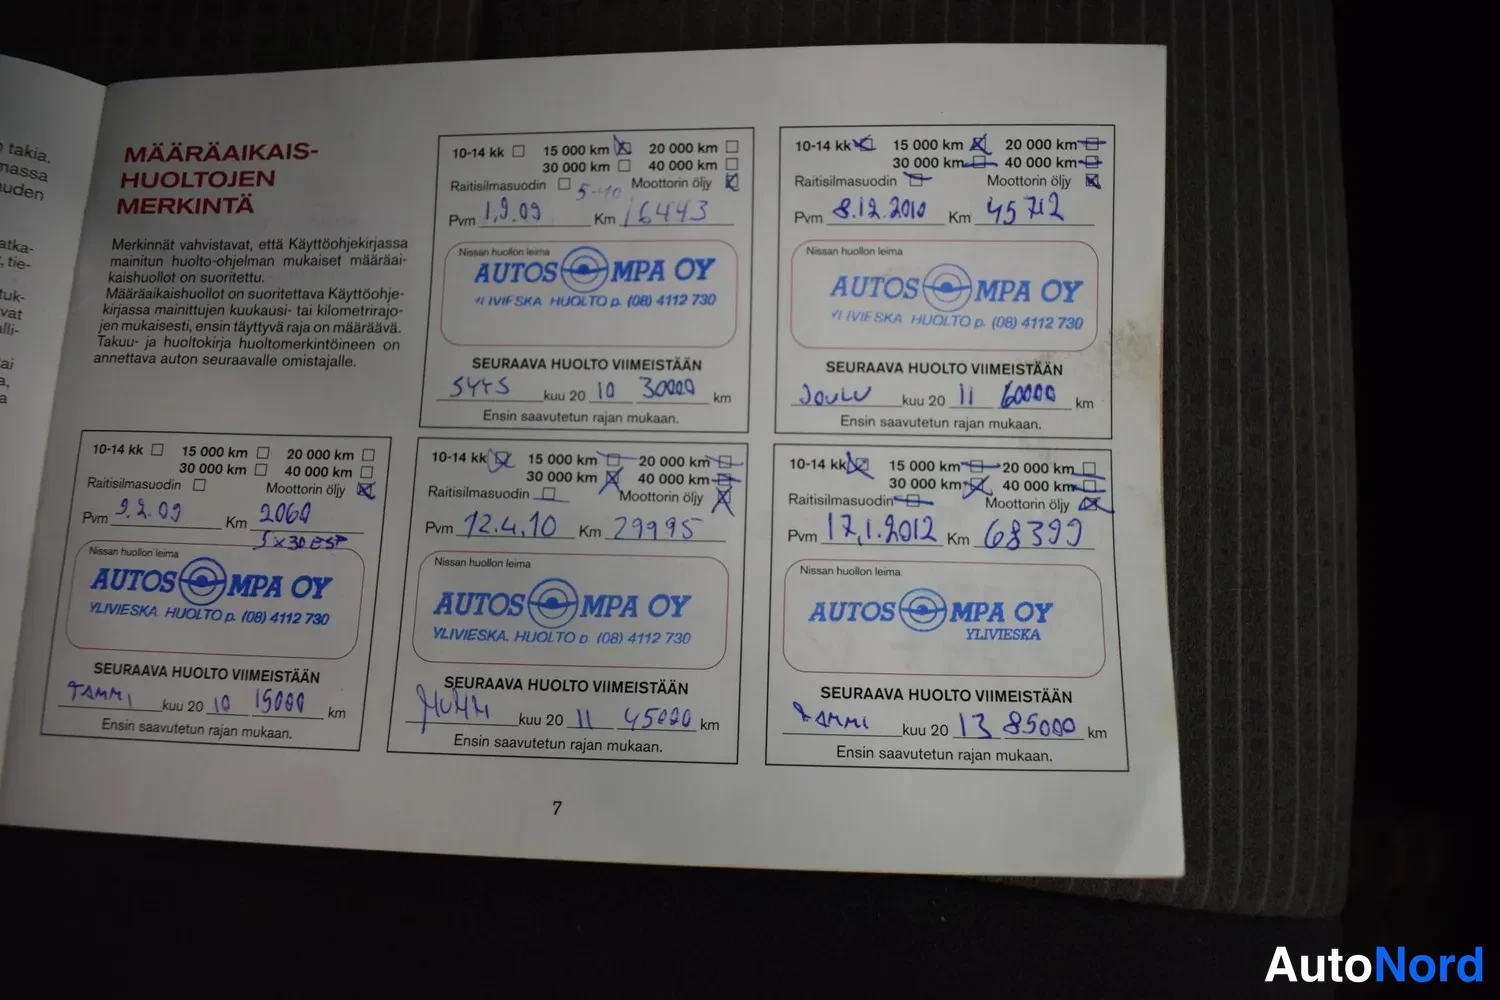 takia.
massa
uuden
atka-
, tie-
tuk-
vat
alli-
tai
a,
a
MÄÄRÄAIKAIS-
HUOLTOJEN
MERKINTÄ
Merkinnät vahvistavat, että Käyttöohjekirjassa
mainitun huolto-ohjelman mukaiset määräai-
kaishuollot on suoritettu.
Määräaikaishuollot on suoritettava Käyttöohje-
kirjassa mainittujen kuukausi- tai kilometrirajo-
jen mukaisesti, ensin täyttyvä raja on määräävä.
Takuu- ja huoltokirja huoltomerkintöineen on
annettava auton seuraavalle omistajalle.
10-14 kk 15 000 km 20 000 km
30 000 km 40 000 km
Raitisilmasuodin Moottorin öljy
5-40
Pvm 1.9.09 Km 16443
Nissan huollon leima
AUTOS MPA OY
YLIVIESKA HUOLTO p. (08) 4112 730
SEURAAVA HUOLTO VIIMEISTÄÄN
SYYS kuu 20 10 30000 km
Ensin saavutetun rajan mukaan.
10-14 kk 15 000 km 20 000 km
30 000 km 40 000 km
Raitisilmasuodin Moottorin öljy
Pvm 8.12.2010 Km 45712
Nissan huollon leima
AUTOS MPA OY
YLIVIESKA HUOLTO p. (08) 4112 730
SEURAAVA HUOLTO VIIMEISTÄÄN
JOULU kuu 20 11 60000 km
Ensin saavutetun rajan mukaan.
10-14 kk 15 000 km 20 000 km
30 000 km 40 000 km
Raitisilmasuodin Moottorin öljy
Pvm 9.2.09 Km 2060
5x30 ESP
Nissan huollon leima
AUTOS MPA OY
YLIVIESKA. HUOLTO p. (08) 4112 730
SEURAAVA HUOLTO VIIMEISTÄÄN
TAMMI kuu 20 10 15000 km
Ensin saavutetun rajan mukaan.
10-14 kk 15 000 km 20 000 km
30 000 km 40 000 km
Raitisilmasuodin Moottorin öljy
Pvm 12.4.10 Km 29995
Nissan huollon leima
AUTOS MPA OY
YLIVIESKA. HUOLTO p. (08) 4112 730
SEURAAVA HUOLTO VIIMEISTÄÄN
HUHTI kuu 20 11 45000 km
Ensin saavutetun rajan mukaan.
10-14 kk 15 000 km 20 000 km
30 000 km 40 000 km
Raitisilmasuodin Moottorin öljy
Pvm 17.1.2012 Km 68399
Nissan huollon leima
AUTOS MPA OY
YLIVIESKA
SEURAAVA HUOLTO VIIMEISTÄÄN
TAMMI kuu 20 13 85000 km
Ensin saavutetun rajan mukaan.
7
AutoNord